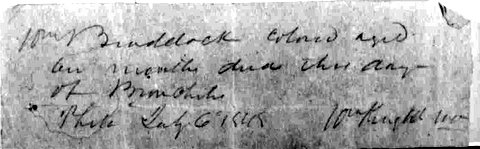 Wm Braddock colored aged
six months died this day
of Bronchitis
Phila July 6th 1848 Wm Knight MD